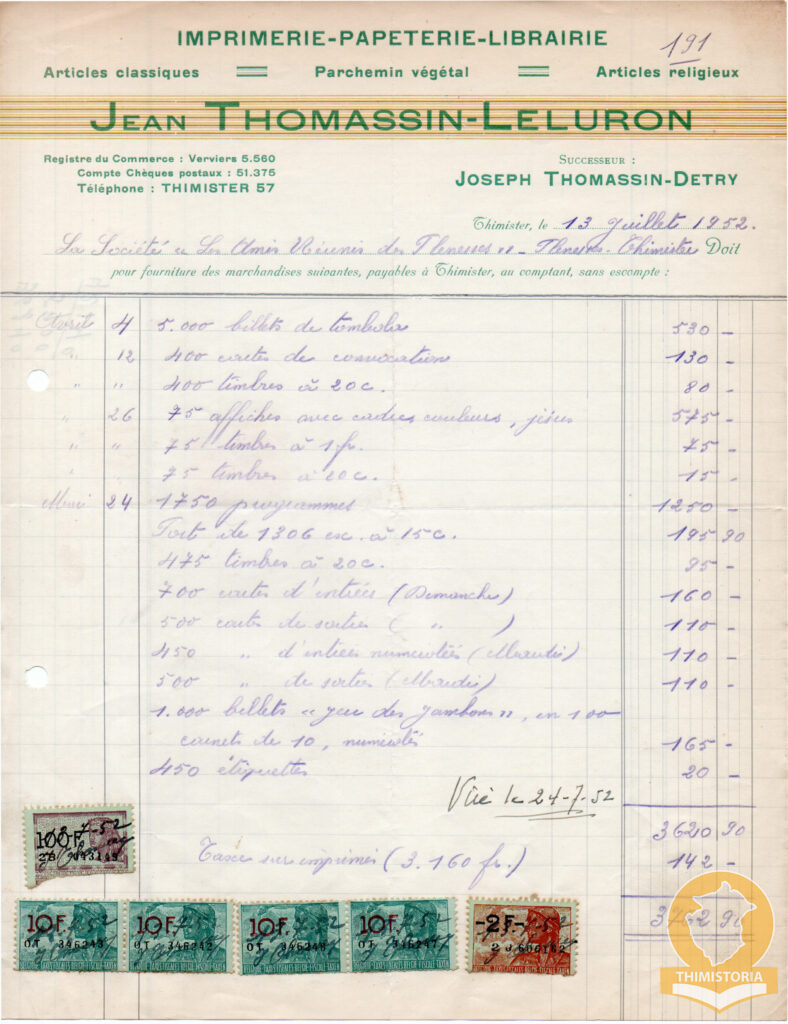 IMPRIMERIE-PAPETERIE-LIBRAIRIE
191
Articles classiques Parchemin végétal Articles religieux
JEAN THOMASSIN-LELURON
Registre du Commerce : Verviers 5.560
Compte Chèques postaux : 51.375
Téléphone : THIMISTER 57
SUCCESSEUR :
JOSEPH THOMASSIN-DETRY
Thimister, le 13 Juillet 1952.
La Société « Les Amis Réunis des Plenesses » - Plenesses-Thimister Doit
pour fourniture des marchandises suivantes, payables à Thimister, au comptant, sans escompte :
Avril 4 5.000 billets de tombola 530 -
" 12 400 cartes de convocations 130 -
" " 400 timbres à 20c. 80 -
" 26 75 affiches avec cadres couleurs, jésus 575 -
" " 75 timbres à 1 fr. 75 -
" 75 timbres à 20c. 15 -
Mai 24 1750 programmes 1250 -
Port de 1306 ex. à 15c. 195 90
475 timbres à 20c. 95 -
700 cartes d'entrées (Dimanche) 160 -
500 cartes de sorties ( " ) 110 -
450 " d'entrées numérotées (Mardi) 110 -
500 " de sorties (Mardi) 110 -
1.000 billets « jeu des jambons », en 100
carnets de 10, numérotés 165 -
450 étiquettes 20 -
Viré le 24-7-52
3620 90
Taxe sur imprimés (3.160 fr.) 142 -
3762 90
100F
10F. 10F. 10F. 10F. -2F-
O.T. 346243 O.T. 346242
BELGIE-TAXES FISCALES
THIMISTORIA